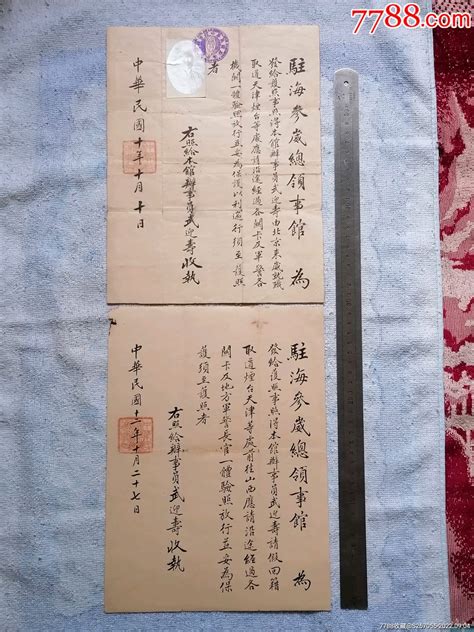 7788.com
駐海參崴總領事館 為
發給護照事照得本館辦事員武迎壽由北京來崴就職
取道天津煙台等處應請沿途經過各關卡及軍警各
機關一體驗照放行並妥為保護以利遄行須至護照
者
右照給本館辦事員武迎壽收執
中華民國十年十月十日
駐海參崴總領事館 為
發給護照事照得本館辦事員武迎壽請假回籍
取道煙台天津等處前往山西應請沿途經過各
關卡及地方軍警長官一體驗照放行並妥為保
護須至護照者
右照給辦事員武迎壽收執
中華民國十一年十月二十七日